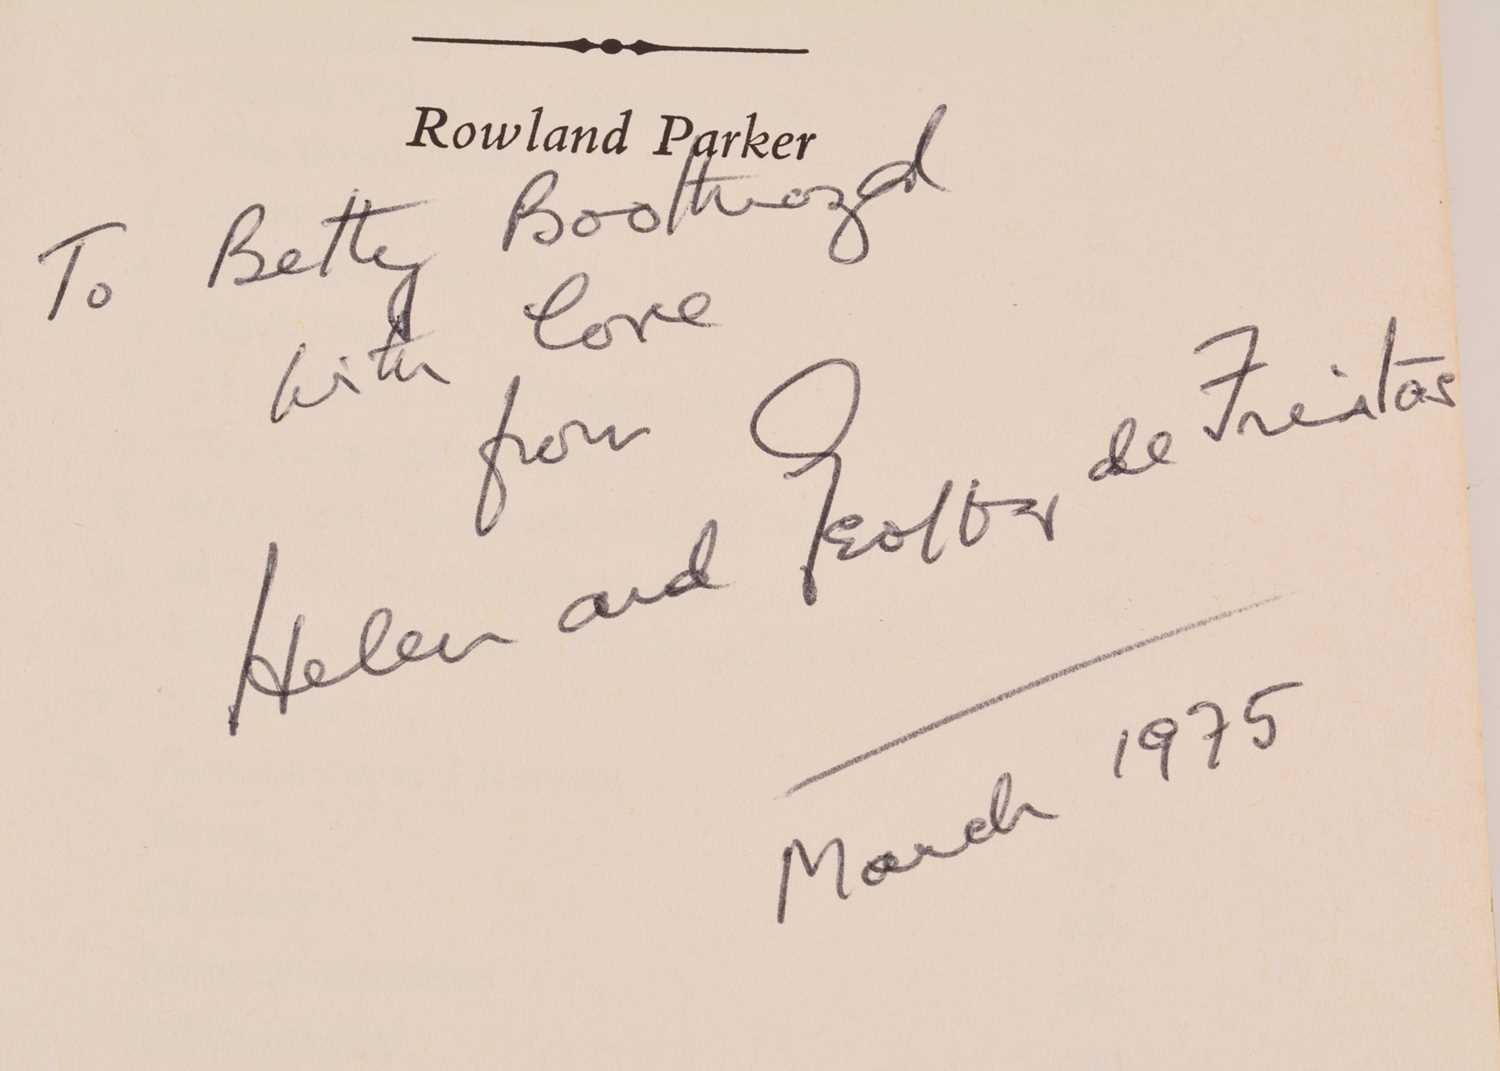 Rowland Parker
To Betty Boothroyd
with love
from
Helen and Geoffrey de Freitas
March 1975